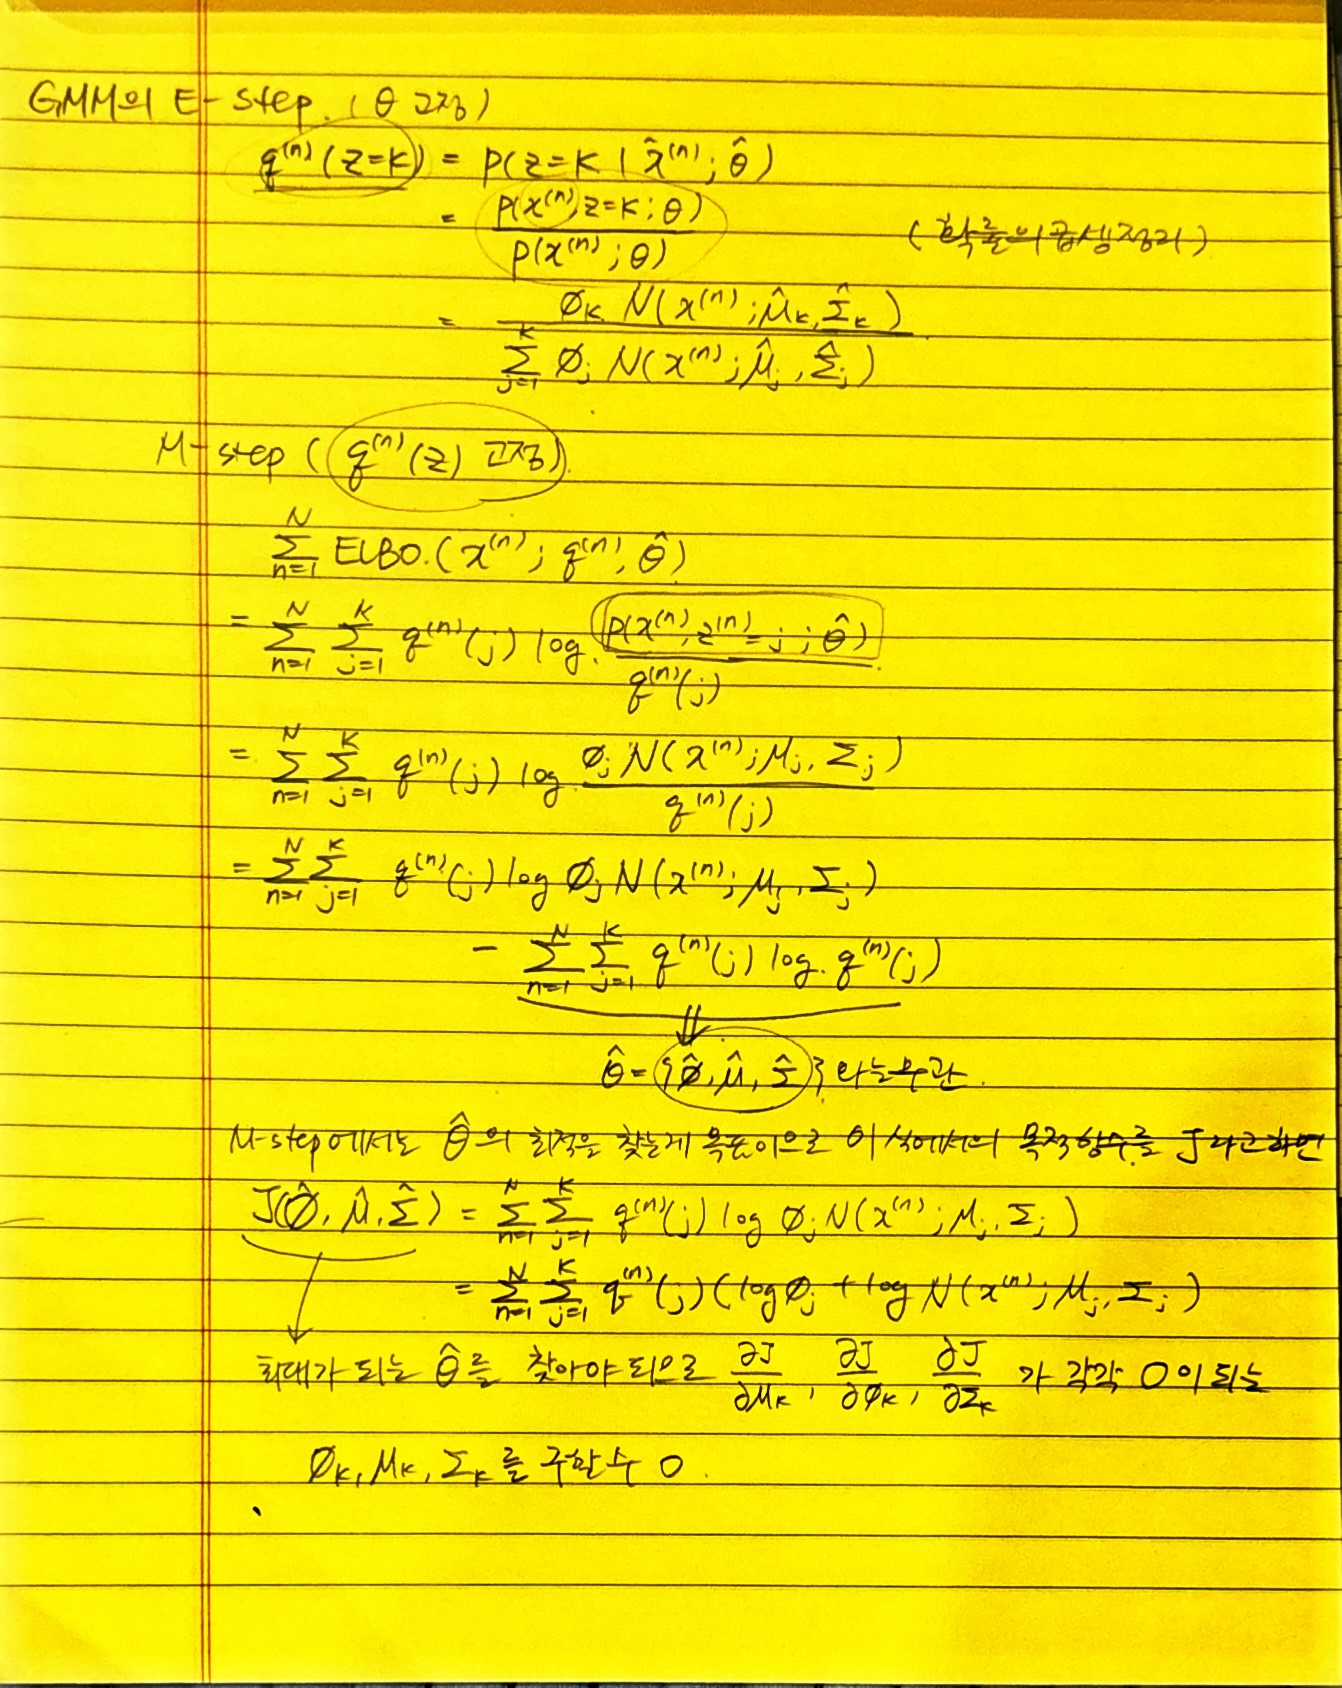 GMM의 E-step. (θ 고정)
q⁽ⁿ⁾(z=k) = p(z=k | x̂⁽ⁿ⁾; θ̂)
= p(x⁽ⁿ⁾, z=k; θ) / p(x⁽ⁿ⁾; θ) (확률의 곱셈정리)
= ϕₖ N(x⁽ⁿ⁾; μ̂ₖ, Σ̂ₖ) / Σ_{j=1}^{K} ϕⱼ N(x⁽ⁿ⁾; μ̂ⱼ, Σ̂ⱼ)
M-step (q⁽ⁿ⁾(z) 고정).
Σ_{n=1}^{N} ELBO.(x⁽ⁿ⁾; q⁽ⁿ⁾, θ̂)
= Σ_{n=1}^{N} Σ_{j=1}^{K} q⁽ⁿ⁾(j) log. p(x⁽ⁿ⁾, z⁽ⁿ⁾=j; θ̂) / q⁽ⁿ⁾(j)
= Σ_{n=1}^{N} Σ_{j=1}^{K} q⁽ⁿ⁾(j) log. ϕⱼ N(x⁽ⁿ⁾; μⱼ, Σⱼ) / q⁽ⁿ⁾(j)
= Σ_{n=1}^{N} Σ_{j=1}^{K} q⁽ⁿ⁾(j) log ϕⱼ N(x⁽ⁿ⁾; μⱼ, Σⱼ)
− Σ_{n=1}^{N} Σ_{j=1}^{K} q⁽ⁿ⁾(j) log. q⁽ⁿ⁾(j)
⇓
θ̂ = {ϕ̂, μ̂, Σ̂} 와는 무관.
M-step에서는 θ̂의 최적을 찾는게 목표이으로 이 식에서의 목적함수를 J라고하면
J(ϕ̂, μ̂, Σ̂) = Σ_{n=1}^{N} Σ_{j=1}^{K} q⁽ⁿ⁾(j) log ϕⱼ N(x⁽ⁿ⁾; μⱼ, Σⱼ)
= Σ_{n=1}^{N} Σ_{j=1}^{K} q⁽ⁿ⁾(j) (log ϕⱼ + log N(x⁽ⁿ⁾; μⱼ, Σⱼ)
최대가 되는 θ̂를 찾아야 되으로 ∂J/∂μₖ, ∂J/∂ϕₖ, ∂J/∂Σₖ 가 각각 0이 되는
ϕₖ, μₖ, Σₖ를 구할 수 O.